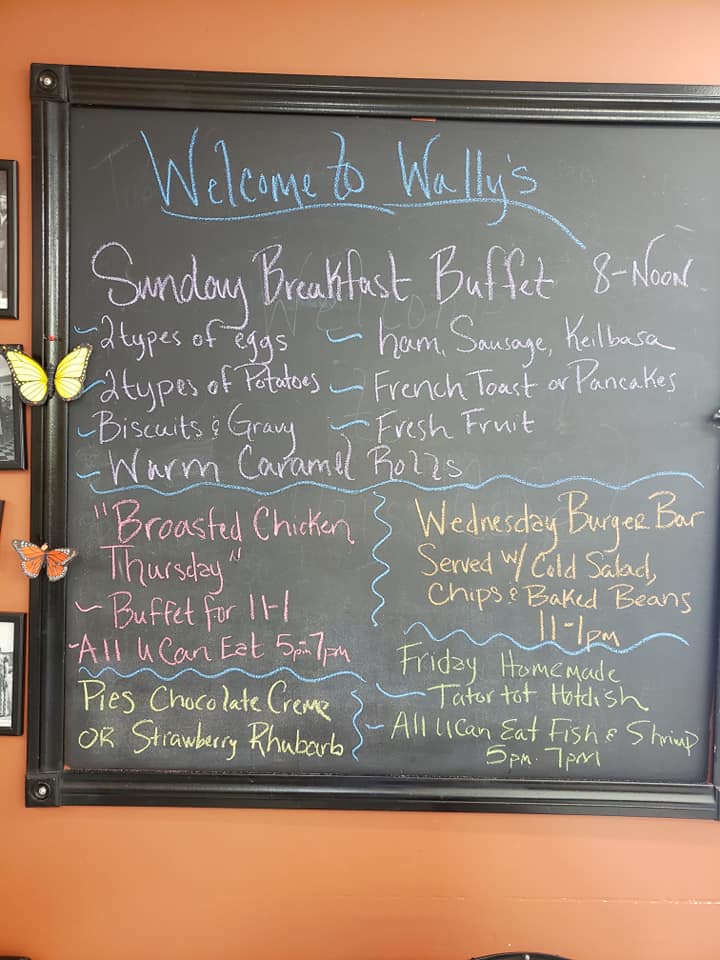 Welcome to Wally's
Sunday Breakfast Buffet 8-NOON
~2types of eggs
~ham, Sausage, Keilbasa
~2types of Potatoes
~French Toast or Pancakes
~Biscuits & Gravy
~Fresh Fruit
~Warm Caramel Rolls
"Broasted Chicken
Thursday"
~Buffet for 11-1
~All U Can Eat 5pm-7pm
Wednesday Burger Bar
Served w/ Cold Salad,
Chips & Baked Beans
11-1pm
Pies Chocolate Creme
OR Strawberry Rhubarb
Friday Homemade
~Tator tot Hotdish
~All U Can Eat Fish & Shrimp
5pm-7pm